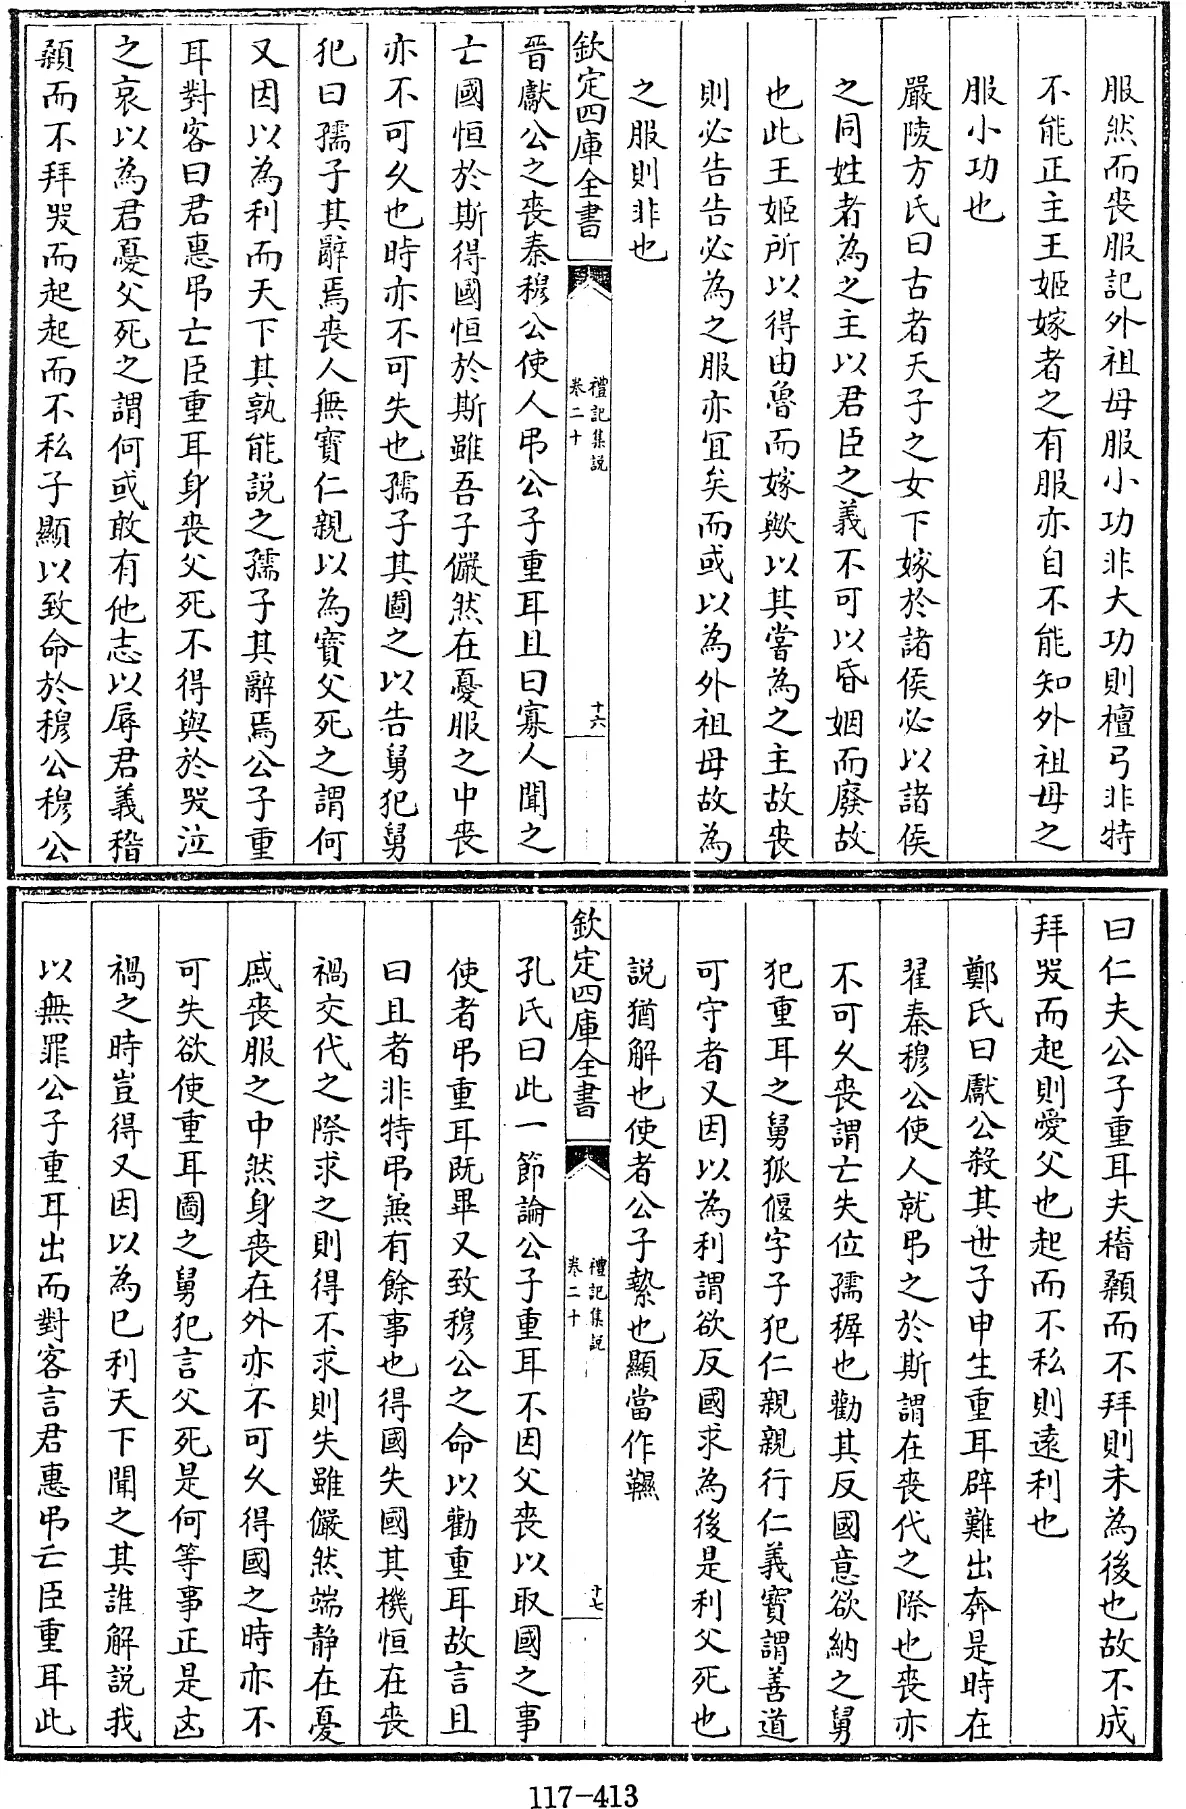 服然而喪服記外祖母服小功非大功則檀弓非特
不能正主王姬嫁者之有服亦自不能知外祖母之
服小功也
嚴陵方氏曰古者天子之女下嫁於諸侯必以諸侯
之同姓者為之主以君臣之義不可以昏姻而廢故
也此王姬所以得由魯而嫁歟以其嘗為之主故喪
則必告告必為之服亦宜矣而或以為外祖母故為
之服則非也
欽定四庫全書
禮記集說
卷二十
十六
晉獻公之喪秦穆公使人弔公子重耳且曰寡人聞之
亡國恒於斯得國恒於斯雖吾子儼然在憂服之中喪
亦不可久也時亦不可失也孺子其圖之以告舅犯舅
犯曰孺子其辭焉喪人無寶仁親以為寶父死之謂何
又因以為利而天下其孰能說之孺子其辭焉公子重
耳對客曰君惠弔亡臣重耳身喪父死不得與於哭泣
之哀以為君憂父死之謂何或敢有他志以辱君義稽
顙而不拜哭而起起而不私子顯以致命於穆公穆公
曰仁夫公子重耳夫稽顙而不拜則未為後也故不成
拜哭而起則愛父也起而不私則遠利也
鄭氏曰獻公殺其世子申生重耳辟難出奔是時在
翟秦穆公使人就弔之於斯謂在喪代之際也喪亦
不可久喪謂亡失位孺穉也勸其反國意欲納之舅
犯重耳之舅狐偃字子犯仁親親行仁義寶謂善道
可守者又因以為利謂欲反國求為後是利父死也
說猶解也使者公子縶也顯當作韅
欽定四庫全書
禮記集說
卷二十
十七
孔氏曰此一節論公子重耳不因父喪以取國之事
使者弔重耳既畢又致穆公之命以勸重耳故言且
曰且者非特弔兼有餘事也得國失國其機恒在喪
禍交代之際求之則得不求則失雖儼然端靜在憂
戚喪服之中然身喪在外亦不可久得國之時亦不
可失欲使重耳圖之舅犯言父死是何等事正是凶
禍之時豈得又因以為已利天下聞之其誰解說我
以無罪公子重耳出而對客言君惠弔亡臣重耳此
117-413